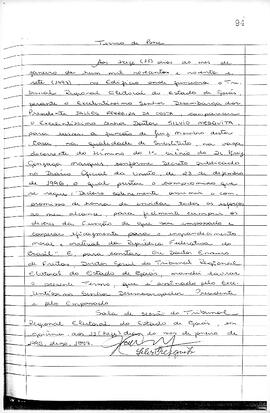 94
Termo de Posse
Aos treze (13) dias do mês de
janeiro de hum mil novecentos e noventa e
sete (1997) no Edifício onde funciona o Tri-
bunal Regional Eleitoral do Estado de Goiás,
perante o Excelentíssimo Senhor Desembargador
Presidente JALLES FERREIRA DA COSTA, compareceu
o Excelentíssimo Senhor Doutor SILVIO MESQUITA
para a função de Juiz membro desta
Casa, na qualidade de Substituto, na vaga
decorrente do término do 1º biênio do Dr. Juiz
Gonzaga Marques, conforme Decreto publicado
no Diário Oficial da União, de 23 de dezembro
de 1996, o qual prestou o compromisso que
se segue: "Declaro solenemente, assumir o com-
promisso de honra de envidar todos os esforços
ao meu alcance, para fielmente cumprir os
deveres da função e que sou empossado e
cooperar eficazmente para o engrandecimento
moral e material da República Federativa do
Brasil". E, para constar, eu
de Freitas, Diretor Geral do Tribunal Regional
Eleitoral do Estado de Goiás, mandei lavrar
o presente Termo, que é assinado pelo Exce-
lentíssimo Senhor Desembargador Presidente
e pelo Empossado.
Sala de sessão do Tribunal
Regional Eleitoral do Estado de Goiás, em
Goiânia, aos 13 (treze) dias do mês de janeiro de
1997